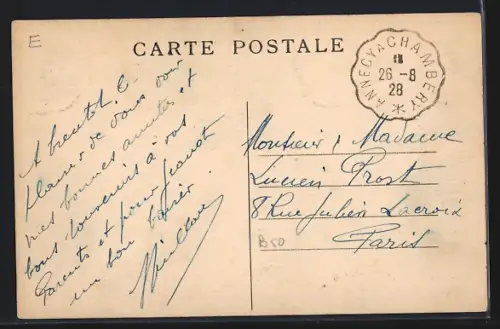 E
CARTE POSTALE
ANNECY A CHAMBERY
26-8
28
A bientôt le
plaisir de vous voir
mes bonnes amitiés et
bons souvenirs à vos
Parents et pour Jeannot
un bon baiser
Monsieur, Madame
Lucien Prost
8 Rue Julien Lacroix
Paris
B50